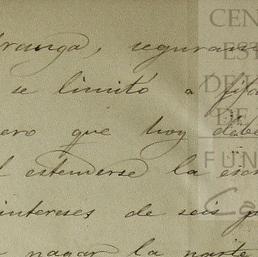 seguram
se limitó a fija
ero que hoy debe
l estenderse la esc
intereses de seis p
pagar la parte
CEN
EST
DE L
DE
FUN
Ca